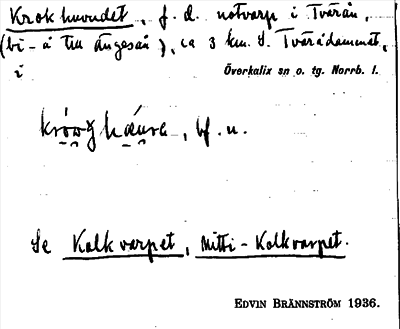 Krokhuvudet, f. d. notvarp i Tvärån,
(bi-å till Ängesån), ca 3 km. S. Tvärådammet,
i
Överkalix sn o. tg. Norrb. l.
bf. n.
Se Kolkvarpet, Mitti-Kolkvarpet.
EDVIN BRÄNNSTRÖM 1936.